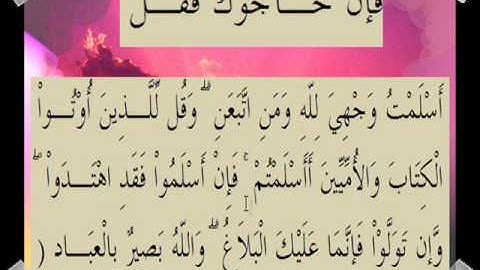 فَإِنْ حَـــاجُّوكَ فَقُـــلْ
أَسْلَمْتُ وَجْهِيَ لِلَّهِ وَمَنِ اتَّبَعَنِ ۗ وَقُل لِّلَّـــذِينَ أُوْتُـــواْ
الْكِتَابَ وَالْأُمِّيِّينَ أَأَسْلَمْتُمْ ۚ فَإِنْ أَسْلَمُواْ فَقَدِ اهْتَـــدَواْ ۖ
وَّإِن تَوَلَّوْاْ فَإِنَّمَا عَلَيْكَ الْبَلَاغُ ۗ وَاللَّهُ بَصِيرٌ بِالْعِبَـــادِ (